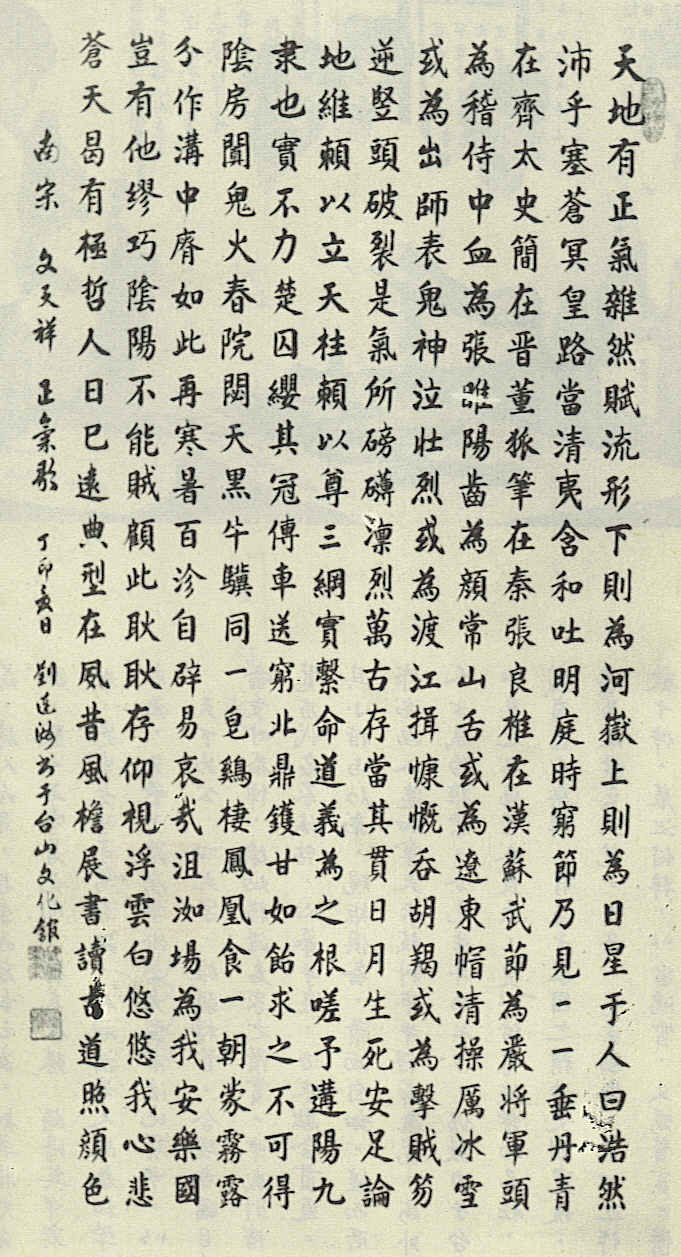 天地有正氣雜然賦流形下則為河嶽上則為日星于人曰浩然
沛乎塞蒼冥皇路當清夷含和吐明庭時窮節乃見一一垂丹青
在齊太史簡在晋董狐筆在秦張良椎在漢蘇武節為嚴將軍頭
為稽侍中血為張睢陽齒為顏常山舌或為遼東帽清操厲冰雪
或為出師表鬼神泣壯烈或為渡江揖慷慨吞胡羯或為擊賊笏
逆豎頭破裂是氣所磅礴凛烈萬古存當其貫日月生死安足論
地維賴以立天柱賴以尊三綱實繫命道義為之根嗟予遘陽九
隶也實不力楚囚纓其冠傳車送窮北鼎鑊甘如飴求之不可得
陰房闃鬼火春院閟天黑牛驥同一皂鷄棲鳳凰食一朝蒙霧露
分作溝中瘠如此再寒暑百沴自辟易哀哉沮洳場為我安樂國
豈有他繆巧陰陽不能賊顧此耿耿存仰視浮雲白悠悠我心悲
蒼天曷有極哲人日已遠典型在夙昔風檐展書讀古道照顏色
南宋 文天祥 正氣歌 丁卯日 劉廷书于台山文化館